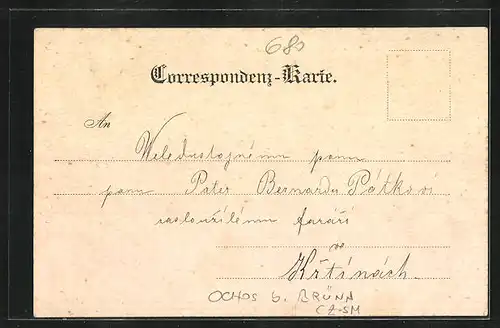 680
Correspondenz-Karte.
An
Veledůstojnému panu
panu Pater Bernardu Pátkovi
zasloužilému faráři
ve
Křtinách.
OCHOS b. BRÜNN
CZ-SM